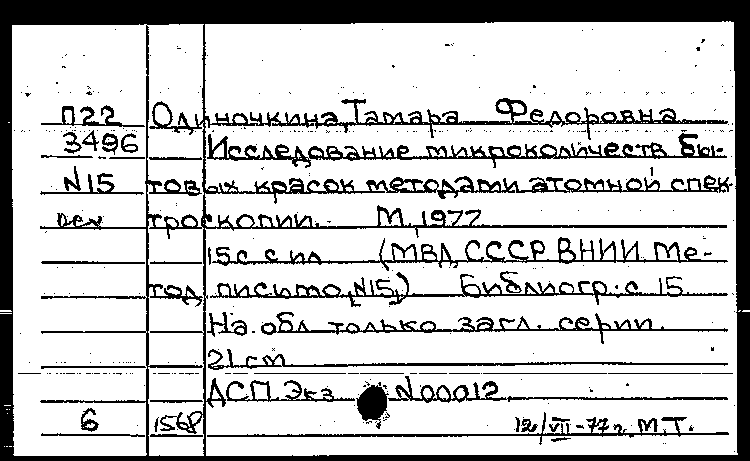 П22 Одиночкина, Тамара Федоровна
3496 Исследование микроколичеств бы-
N15 товых красок методами атомной спек
троскопии. М, 1977
15 с с ил (МВД СССР ВНИИ. Ме-
тод письмо, N15) Библиогр: с 15
На обл только загл. серии.
21 см
ДСП. Экз N00012.
6 1568 12/VII-77 г. М.Т.